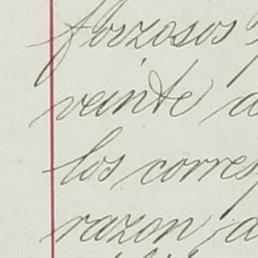 forzosos
veinte
los corres
razon